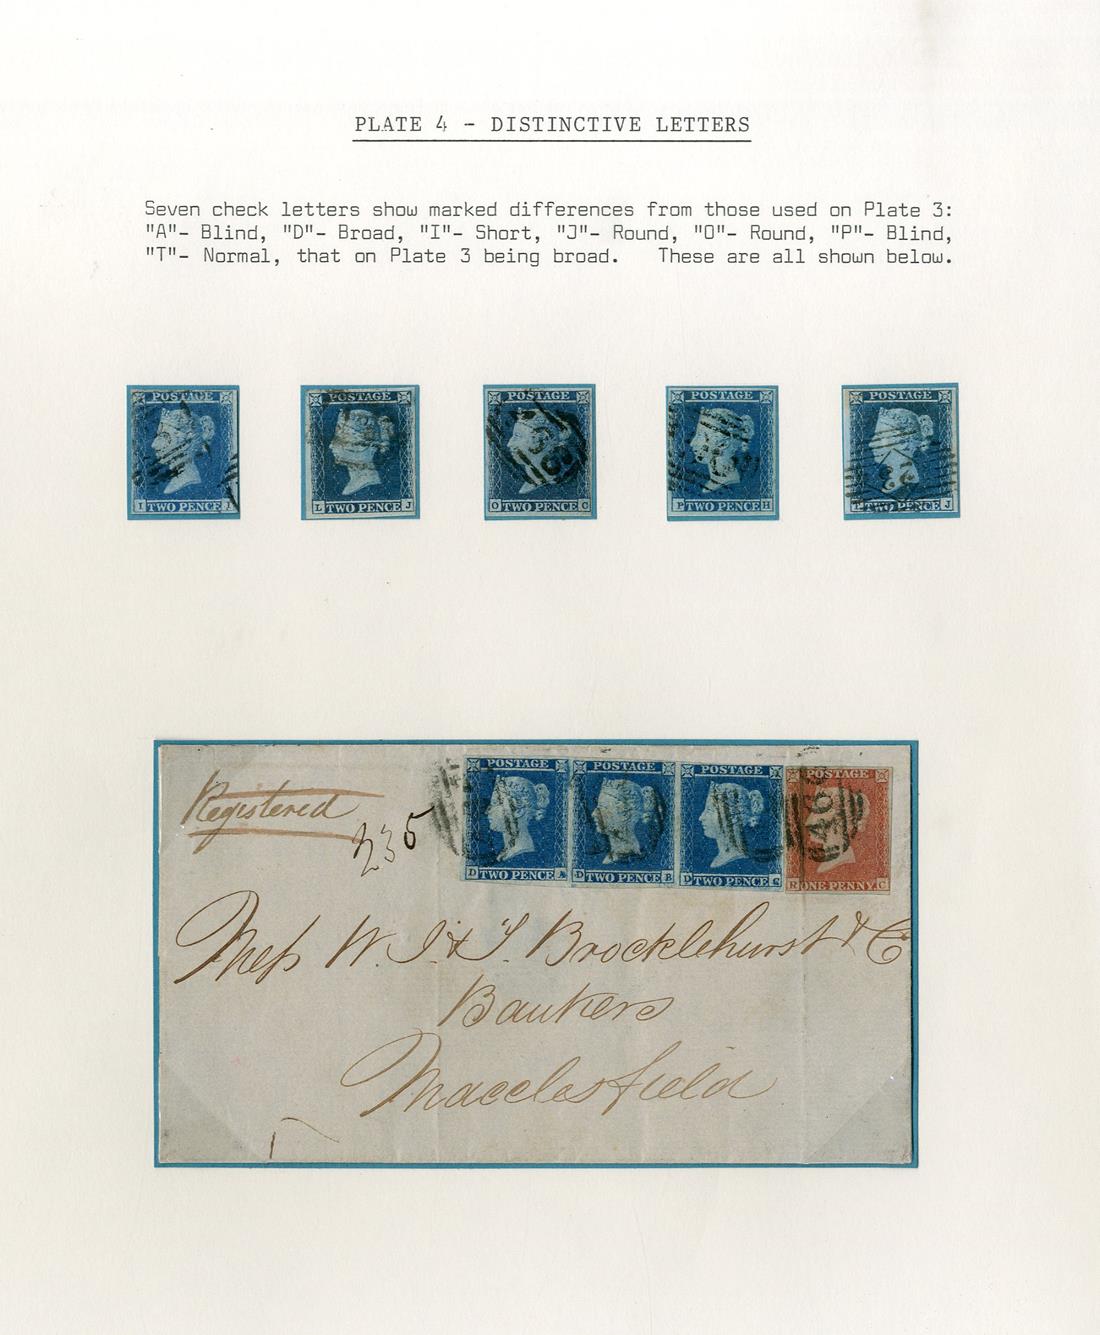 PLATE 4 - DISTINCTIVE LETTERS
Seven check letters show marked differences from those used on Plate 3:
"A"- Blind, "D"- Broad, "I"- Short, "J"- Round, "O"- Round, "P"- Blind,
"T"- Normal, that on Plate 3 being broad. These are all shown below.
POSTAGE POSTAGE POSTAGE POSTAGE POSTAGE
I TWO PENCE L TWO PENCE J O TWO PENCE C P TWO PENCE H TWO PENCE J
Registered
235
POSTAGE POSTAGE POSTAGE POSTAGE
A6
D TWO PENCE A D TWO PENCE B D TWO PENCE C R ONE PENNY C
Mess W. J. & T. Brocklehurst & Co
Bankers
Macclesfield